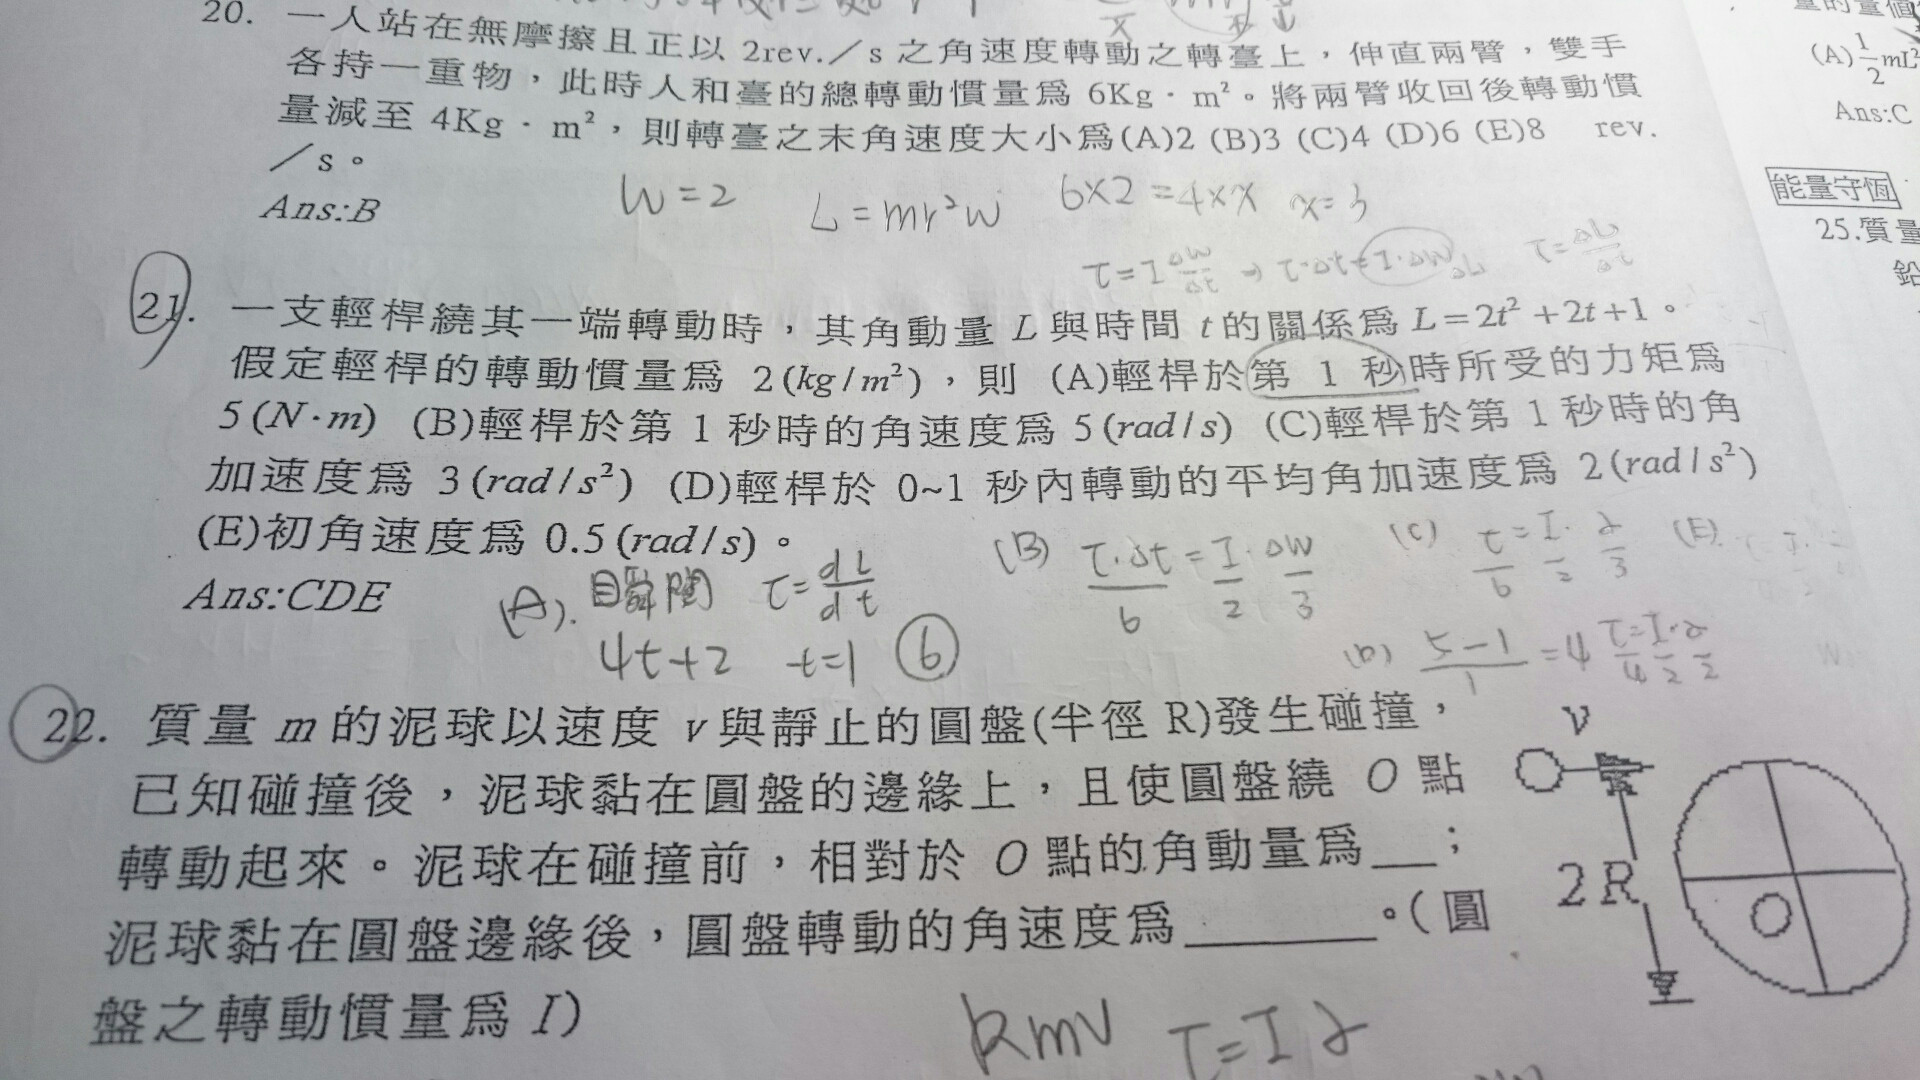 20. 一人站在無摩擦且正以 2rev.／s 之角速度轉動之轉臺上，伸直兩臂，雙手
各持一重物，此時人和臺的總轉動慣量為 6Kg · m²。將兩臂收回後轉動慣
量減至 4Kg · m²，則轉臺之末角速度大小為(A)2 (B)3 (C)4 (D)6 (E)8 rev.
／s。
Ans:B
W=2 L=mr²w 6×2=4×x x=3
τ=I Δw/Δt ⇒ τ·Δt=I·Δw ΔL τ=ΔL/Δt
21. 一支輕桿繞其一端轉動時，其角動量 L 與時間 t 的關係為 L=2t²+2t+1。
假定輕桿的轉動慣量為 2(kg/m²)，則 (A)輕桿於第 1 秒時所受的力矩為
5(N·m) (B)輕桿於第 1 秒時的角速度為 5(rad/s) (C)輕桿於第 1 秒時的角
加速度為 3(rad/s²) (D)輕桿於 0~1 秒內轉動的平均角加速度為 2(rad/s²)
(E)初角速度為 0.5(rad/s)。
Ans:CDE
(A). 瞬間 τ=dL/dt
4t+2 t=1 6
(B) τ·Δt=I·Δw
6 2 3
(C) τ=I·α
6 2 3
(E).
(D) 5-1/1=4 τ=I·α
4 2 2
22. 質量 m 的泥球以速度 v 與靜止的圓盤(半徑 R)發生碰撞，
已知碰撞後，泥球黏在圓盤的邊緣上，且使圓盤繞 O 點
轉動起來。泥球在碰撞前，相對於 O 點的角動量為__；
泥球黏在圓盤邊緣後，圓盤轉動的角速度為______。(圓
盤之轉動慣量為 I)
v
2R
O
Rmv τ=Iα
(A) 1/2 mL²
Ans:C
能量守恆
25.質量
鉛